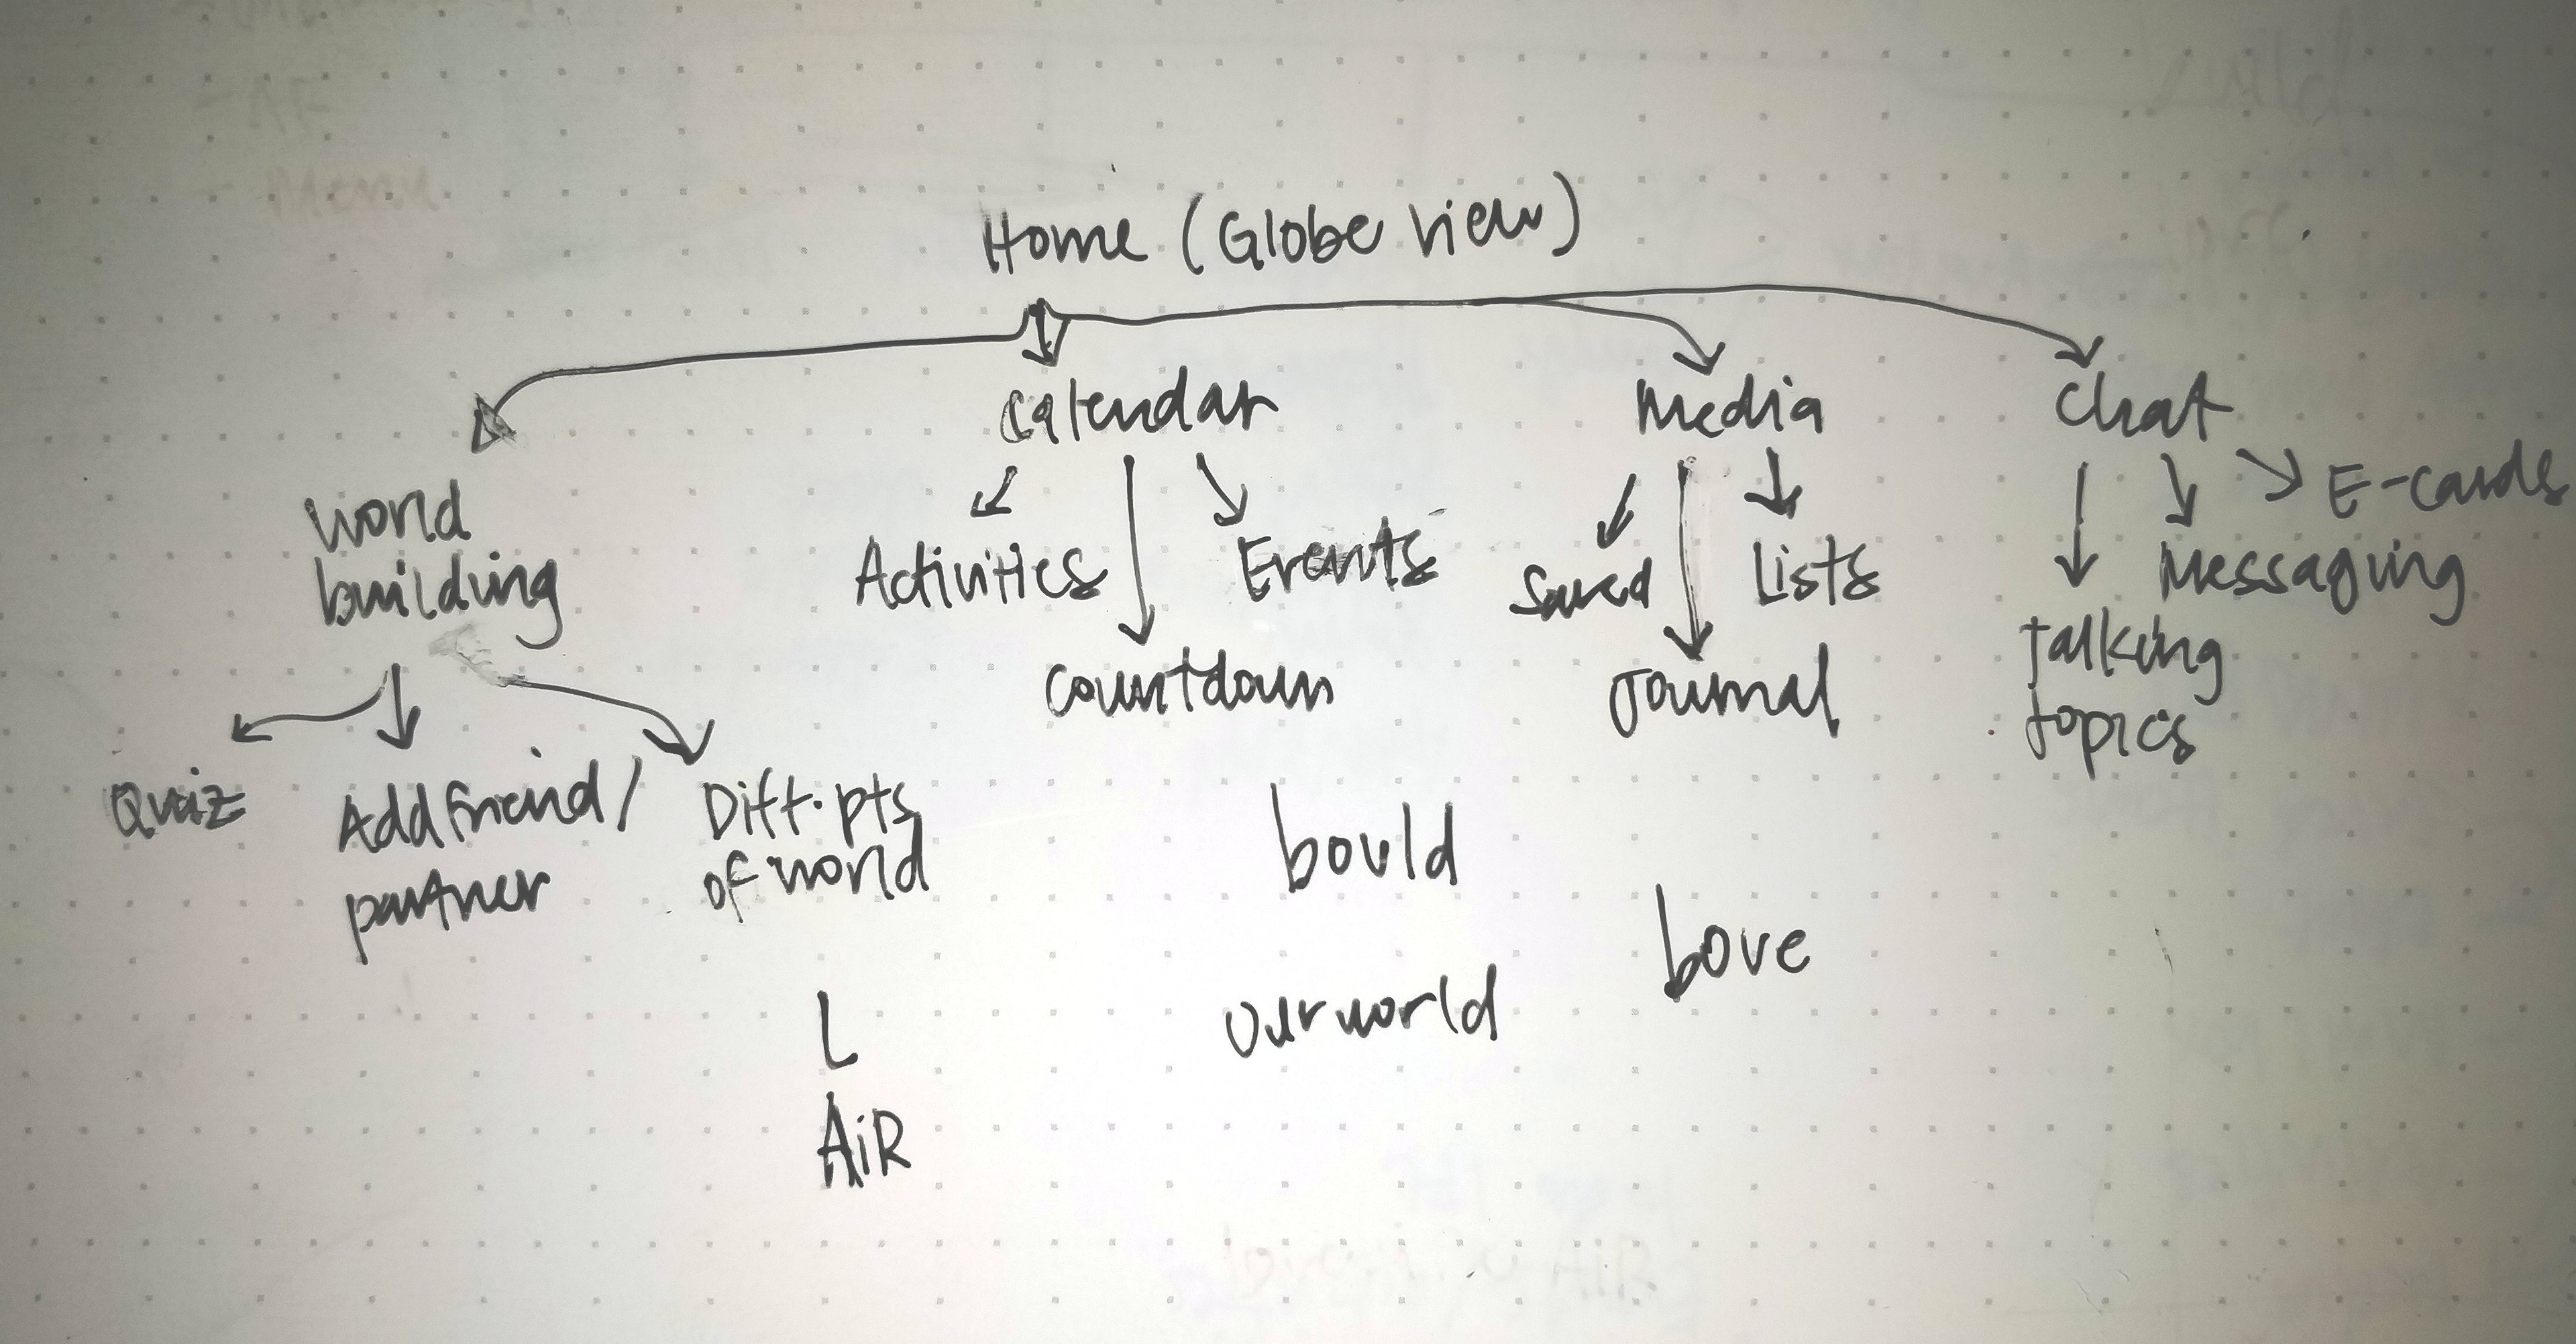 Home (Globe view)
world
building
Quiz
Add friend/
partner
Diff. pts
of world
Calendar
Activities
Countdown
Events
Media
Saved
Journal
Lists
Chat
Talking
topics
Messaging
E-cards
bould
bove
ourworld
L
AiR